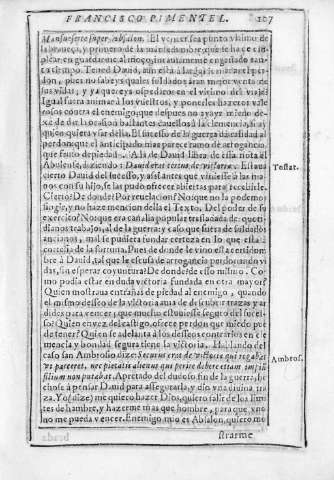 FRANCISCO PIMENTEL. 107
Mansuescere super Absalon. El vencer sea punto ultimo de
la braveça, y primero de la
en guardarme al moço, intimamente engastado tan
to tiempo. Tened David, aun está à largas marcar el per
don, pues no sabeys quales soldados aran mejor vento de
sus vidas, y ya que eys os perdeo en el ultimo del viaje
igual fuera animar à los vuestros, y ponerles hazeros vale
rosos contra el enemigo, que despues no ayays miedo dexe
de dar la ocasion bastantes causas à la clemencia, si ay
quien quiera usar della. El sucesso de la guerra dà calidad al
perdon, que el anticipado mas parece ramo de arrogancia,
que fruto de piedad. A la de David libra de esta nota el
Abulense, diziendo: David erat certus de victoria. Estava
cierto David del sucesso, y assi antes que viniesse à las ma
nos con su hijo, se las pudo ofrecer abiertas para recebirle.
Cierto? De donde? Por revelacion? No que no la podemos
fingir, y no haze mencion della el Texto. Del poder de su
exercito? No que era canalla popular trasladada de quoti-
dianos trabajos, al de la guerra; y caso que fuera de soldados
ancianos, mal se pudiera fundar certeza en lo que està à
cortesia de la fortuna. Pues de donde le vino esta certidum
bre à David, tal que le escusa de arrogancia perdonando vi
das, sin esperar coyuntura? De donde? de esso mismo. Co
mo podia estar en duda vitoria fundada en otra mayor?
Quien mostrava entrañas de piedad al enemigo, quando
el mismo desseo de la vitoria anima de descubrir trazas y ar
dides para vencer, que mucho estuviesse seguro del suces-
so? Quien en vez del castigo, ofrece perdon que miedo pue
de tener? Quien se adelanta à los desseos contrarios en cle
mencia y bondad segura tiene la vitoria. Hablando del
caso san Ambrosio dize: Securus erat de victoria qui rogabat
ut parceret, nec pietatis alienus qui
filium non putabat. Apretado del dudoso fin de la guerra, se he
chose à pensar David para assegurarla, y dio una divina tra
za. Yo (dize) me quiero hazer Dios, quiero salir de los limi
tes de hombre, y hazerme mas que hombre, para que uno
no me pueda vencer. Enemigo mio es Absalon, quiero mo
strarme
Testat.
Ambros.